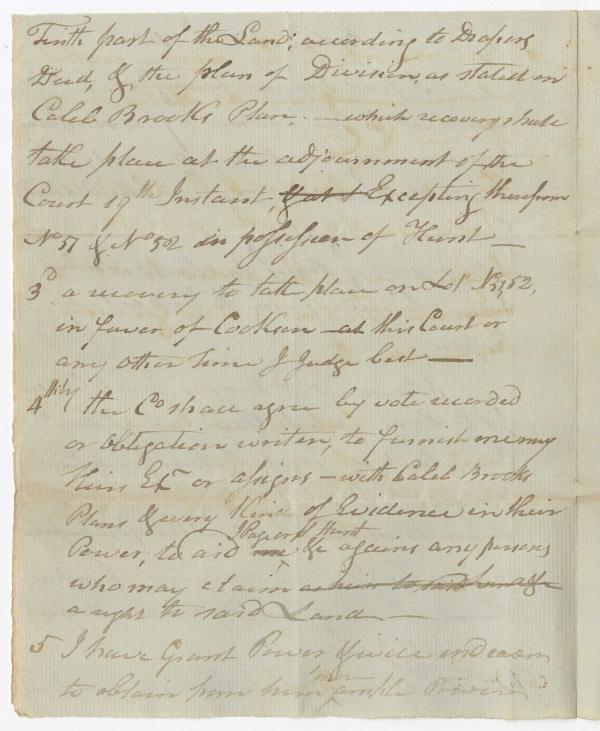 Tenth part of the Land; according to Drapers
Deed, & the plan of Division, as stated in
Caleb Brooks Plan, — which recovery shall
take place at the adjournment of the
Court 19th Instant, & at t Excepting therefrom
No 51 & No 52 in possession of Hunt —
3d a recovery to take place on Lot No 51, 52,
in favor of Cookson at this Court or
any other time I Judge best —
4thly the Co shall agree by vote recorded
or obligation writen, to furnish me my
Heirs Ex or assigns — with Caleb Brooks
Plans & every Kind of Evidence in their
Hunt
Power, to aid me & agains any persons
who may claim
a right to said Land —
5 I have Grant Power & will endeavor
to obtain from him ample Power